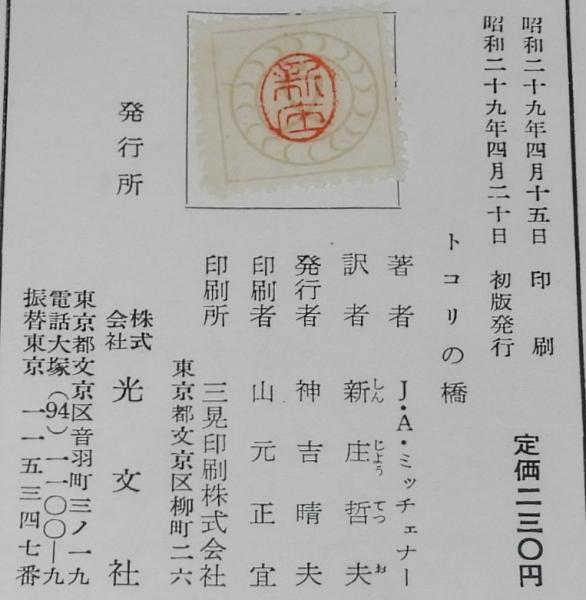 昭和二十九年四月十五日　印　刷
昭和二十九年四月二十日　初版発行
定価二三〇円
トコリの橋
著　者　J・A・ミッチェナー
訳　者　新庄哲夫
しん　じょう　てつ　お
発行者　神吉晴夫
印刷者　山元正宜
印刷所　三晃印刷株式会社
東京都文京区柳町二六
新庄
発行所　株式会社　光文社
東京都文京区音羽町三ノ一九
電話大塚（94）一一〇〇―九
振替東京　一一五三四七番